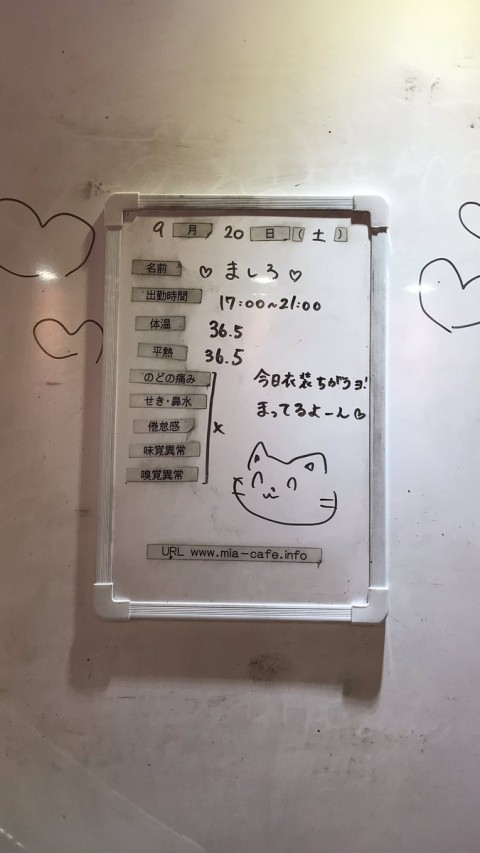 9月 20日(土)
名前 ♡ ましろ ♡
出勤時間 17:00~21:00
体温 36.5
平熱 36.5
のどの痛み
せき・鼻水
倦怠感 ×
味覚異常
嗅覚異常
今日衣装ちがうヨ!
まってるよーん♡
URL www.mia-cafe.info